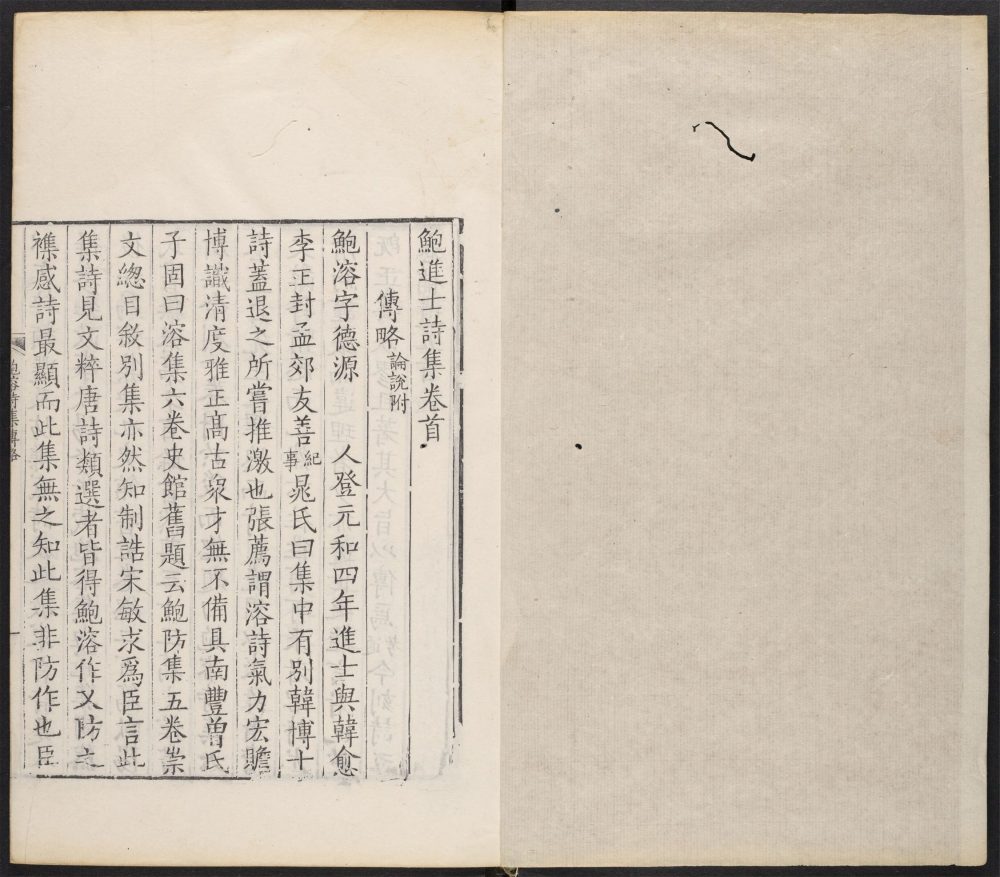 鮑進士詩集卷首
傳略論說附
鮑溶字德源　　人登元和四年進士與韓愈
李正封孟郊友善紀事晁氏曰集中有別韓博士
詩蓋退之所嘗推激也張薦謂溶詩氣力宏贍
博識清度雅正高古衆才無不備具南豐曽氏
子固曰溶集六卷史館舊題云鮑防集五卷崇
文緫目敘別集亦然知制誥宋敏求爲臣言此
集詩見文粹唐詩類選者皆得鮑溶作又防之
襍感詩最顯而此集無之知此集非防作也臣